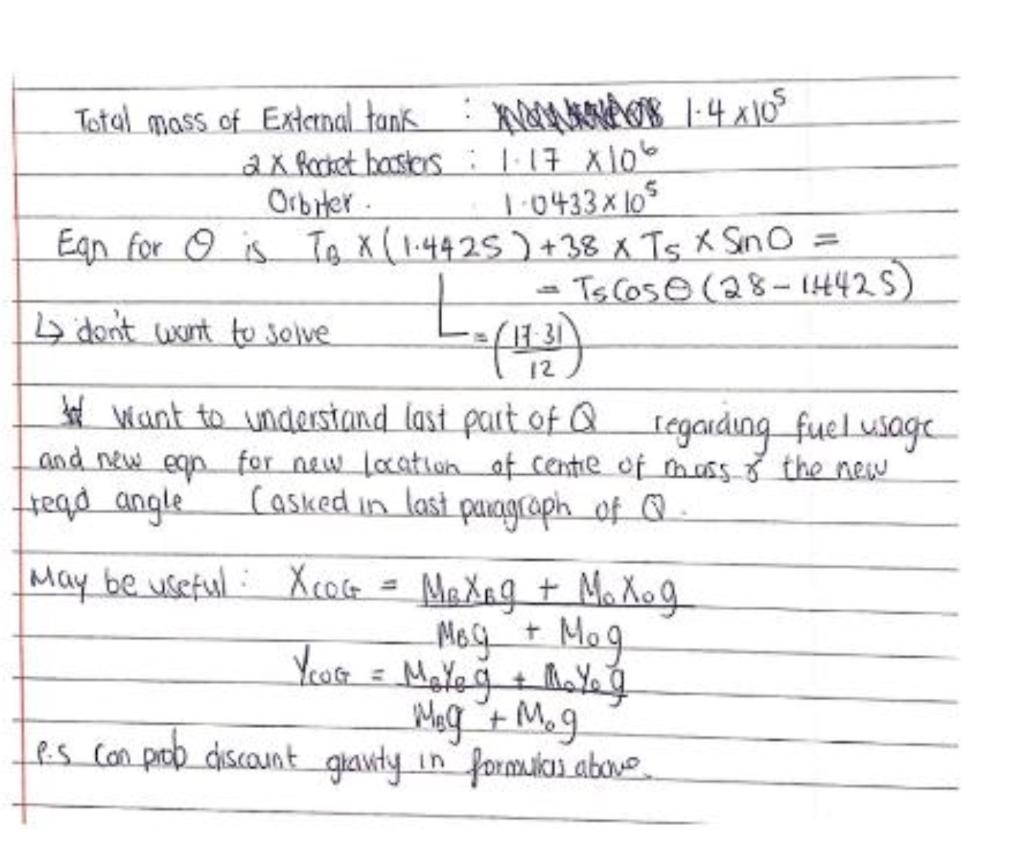 Total mass of External tank : 1.4 x10⁵
2 x Rocket boosters : 1.17 x10⁶
Orbiter. 1.0433x10⁵
Eqn for Θ is T_B x (1.4425) + 38 x T_S x Sin Θ =
= T_S Cos Θ (28 - 1.4425)
↳ don't want to solve = (17.31/12)
Want to understand last part of Q regarding fuel usage
and new eqn for new location of centre of mass & the new
reqd angle (asked in last paragraph of Q.
May be useful : X_COG = M_B X_B g + M_O X_O g
M_B g + M_O g
Y_COG = M_B Y_B g + M_O Y_O g
M_B g + M_O g
P.S Can prob discount gravity in formulas above.